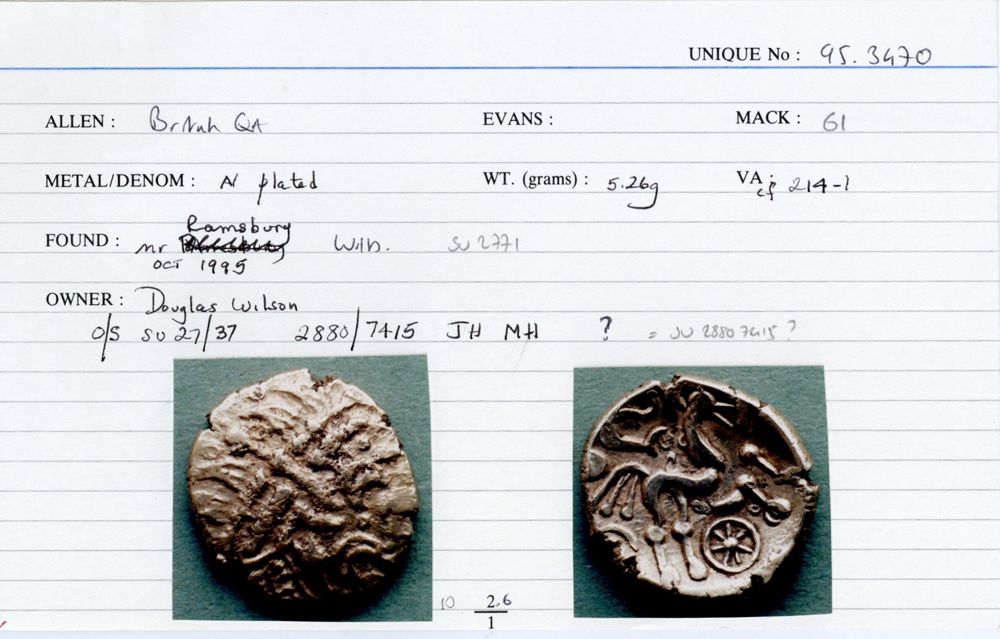 UNIQUE No : 95.3470
ALLEN : British QA EVANS : MACK : 61
METAL/DENOM : AV plated WT. (grams) : 5.26g VA : cf 214-1
Ramsbury
FOUND : nr Wilts. SU 2771
OCT 1995
OWNER : Douglas Wilson
O/S SU 27/37 2880/7415 JH MH ? = SU 2880 7415 ?
10 2.6
1